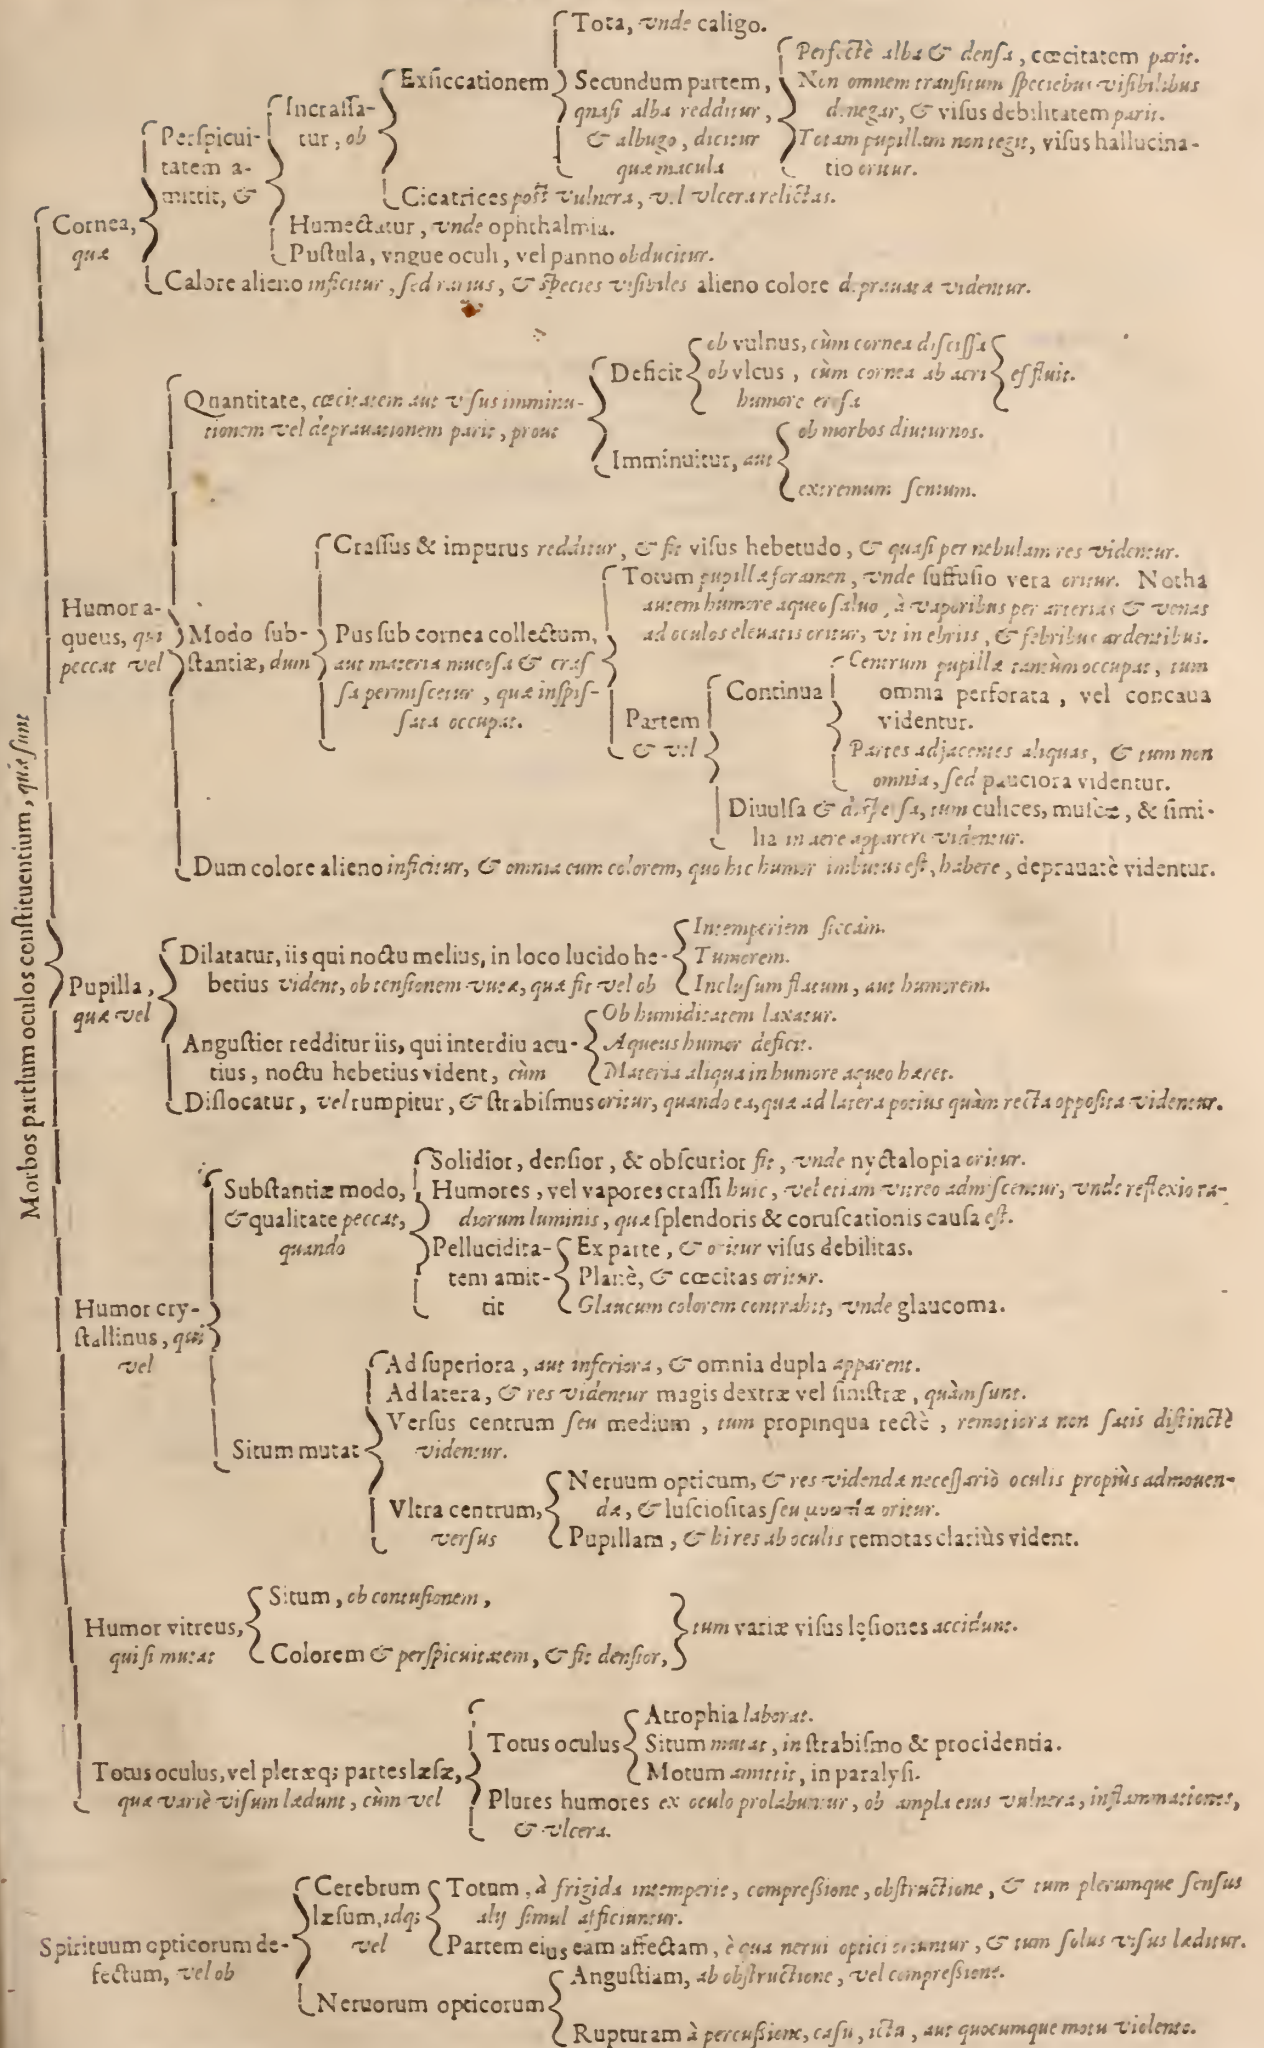 Morbos partium oculos constituentium, quæ sunt
Cornea,
quæ
Perspicui-
tatem a-
mittit, &
Incrassa-
tur, ob
Exsiccationem
Tota, vnde caligo.
Secundum partem,
quasi alba redditur,
& albugo, dicitur
quæ macula
Perfectè alba & densa, cœcitatem parit.
Non omnem transitum speciebus visibilibus
denegat, & visus debilitatem parit.
Totam pupillam non tegit, visus hallucina-
tio oritur.
Cicatrices post vulnera, vel vlcera relictas.
Humectatur, vnde ophthalmia.
Pustula, vngue oculi, vel panno obducitur.
Calore alieno inficitur, sed rarius, & species visibiles alieno colore deprauatæ videntur.
Humor a-
queus, qui
peccat vel
Quantitate, cœcitatem aut visus imminu-
tionem vel deprauationem parit, prout
Deficit
ob vulnus, cùm cornea discissa
ob vlcus, cùm cornea ab acri
humore erosa
effluit.
Imminuitur, aut
ob morbos diuturnos.
extremum senium.
Modo sub-
stantiæ, dum
Crassus & impurus redditur, & fit visus hebetudo, & quasi per nebulam res videntur.
Pus sub cornea collectum,
aut materia mucosa & cras
sa permiscetur, quæ inspis-
sata occupat.
Totum pupillæ foramen, vnde suffusio vera oritur. Notha
autem humore aqueo saluo, à vaporibus per arterias & venas
ad oculos eleuatis oritur, vt in ebriis, & febribus ardentibus.
Partem
& vel
Continua
Centrum pupillæ tantùm occupat, tum
omnia perforata, vel concaua
videntur.
Partes adjacentes aliquas, & tum non
omnia, sed pauciora videntur.
Diuulsa & dispersa, tum culices, muscæ, & simi-
lia in aere apparere videntur.
Dum colore alieno inficitur, & omnia eum colorem, quo hic humor imbutus est, habere, deprauatè videntur.
Pupilla,
quæ vel
Dilatatur, iis qui noctu melius, in loco lucido he-
betius vident, ob tensionem vueæ, quæ fit vel ob
Intemperiem siccam.
Tumorem.
Inclusum flatum, aut humorem.
Angustior redditur iis, qui interdiu acu-
tius, noctu hebetius vident, cùm
Ob humiditatem laxatur.
Aqueus humor deficit.
Materia aliqua in humore aqueo hæret.
Dislocatur, vel rumpitur, & strabismus oritur, quando ea, quæ ad latera potius quàm recta opposita videntur.
Humor cry-
stallinus, qui
vel
Substantiæ modo,
& qualitate peccat,
quando
Solidior, densior, & obscurior fit, vnde nyctalopia oritur.
Humores, vel vapores crassi huic, vel etiam vitreo admiscentur, vnde reflexio ra-
diorum luminis, quæ splendoris & coruscationis causa est.
Pellucidita-
tem amit-
tit
Ex parte, & oritur visus debilitas.
Planè, & cœcitas oritur.
Glaucum colorem contrahit, vnde glaucoma.
Situm mutat
Ad superiora, aut inferiora, & omnia dupla apparent.
Ad latera, & res videntur magis dextræ vel sinistræ, quàm sunt.
Versus centrum seu medium, tum propinqua rectè, remotiora non satis distinctè
videntur.
Vltra centrum,
versus
Neruum opticum, & res videndæ necessariò oculis propiùs admouen-
dæ, & lusciositas seu μυωπία oritur.
Pupillam, & hi res ab oculis remotas clariùs vident.
Humor vitreus,
qui si mutat
Situm, ob contusionem,
Colorem & perspicuitatem, & fit densior,
tum variæ visus lęsiones accidunt.
Totus oculus, vel pleræq; partes læsæ,
quæ variè visum lædunt, cùm vel
Totus oculus
Atrophia laborat.
Situm mutat, in strabismo & procidentia.
Motum amittit, in paralysi.
Plures humores ex oculo prolabuntur, ob ampla eius vulnera, inflammationes,
& vlcera.
Spirituum opticorum de-
fectum, vel ob
Cerebrum
læsum, idq;
vel
Totum, à frigida intemperie, compressione, obstructione, & tum plerumque sensus
alij simul afficiuntur.
Partem eius eam affectam, è qua nerui optici oriuntur, & tum solus visus læditur.
Neruorum opticorum
Angustiam, ab obstructione, vel compressione.
Rupturam à percussione, casu, ictu, aut quocumque motu violento.